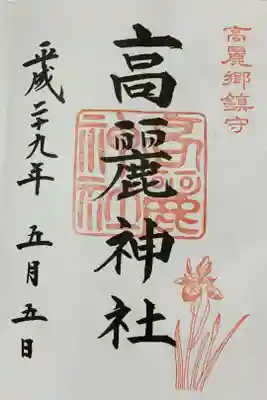 高麗郷鎮守
高麗神社
高麗神社
平成二十九年五月五日